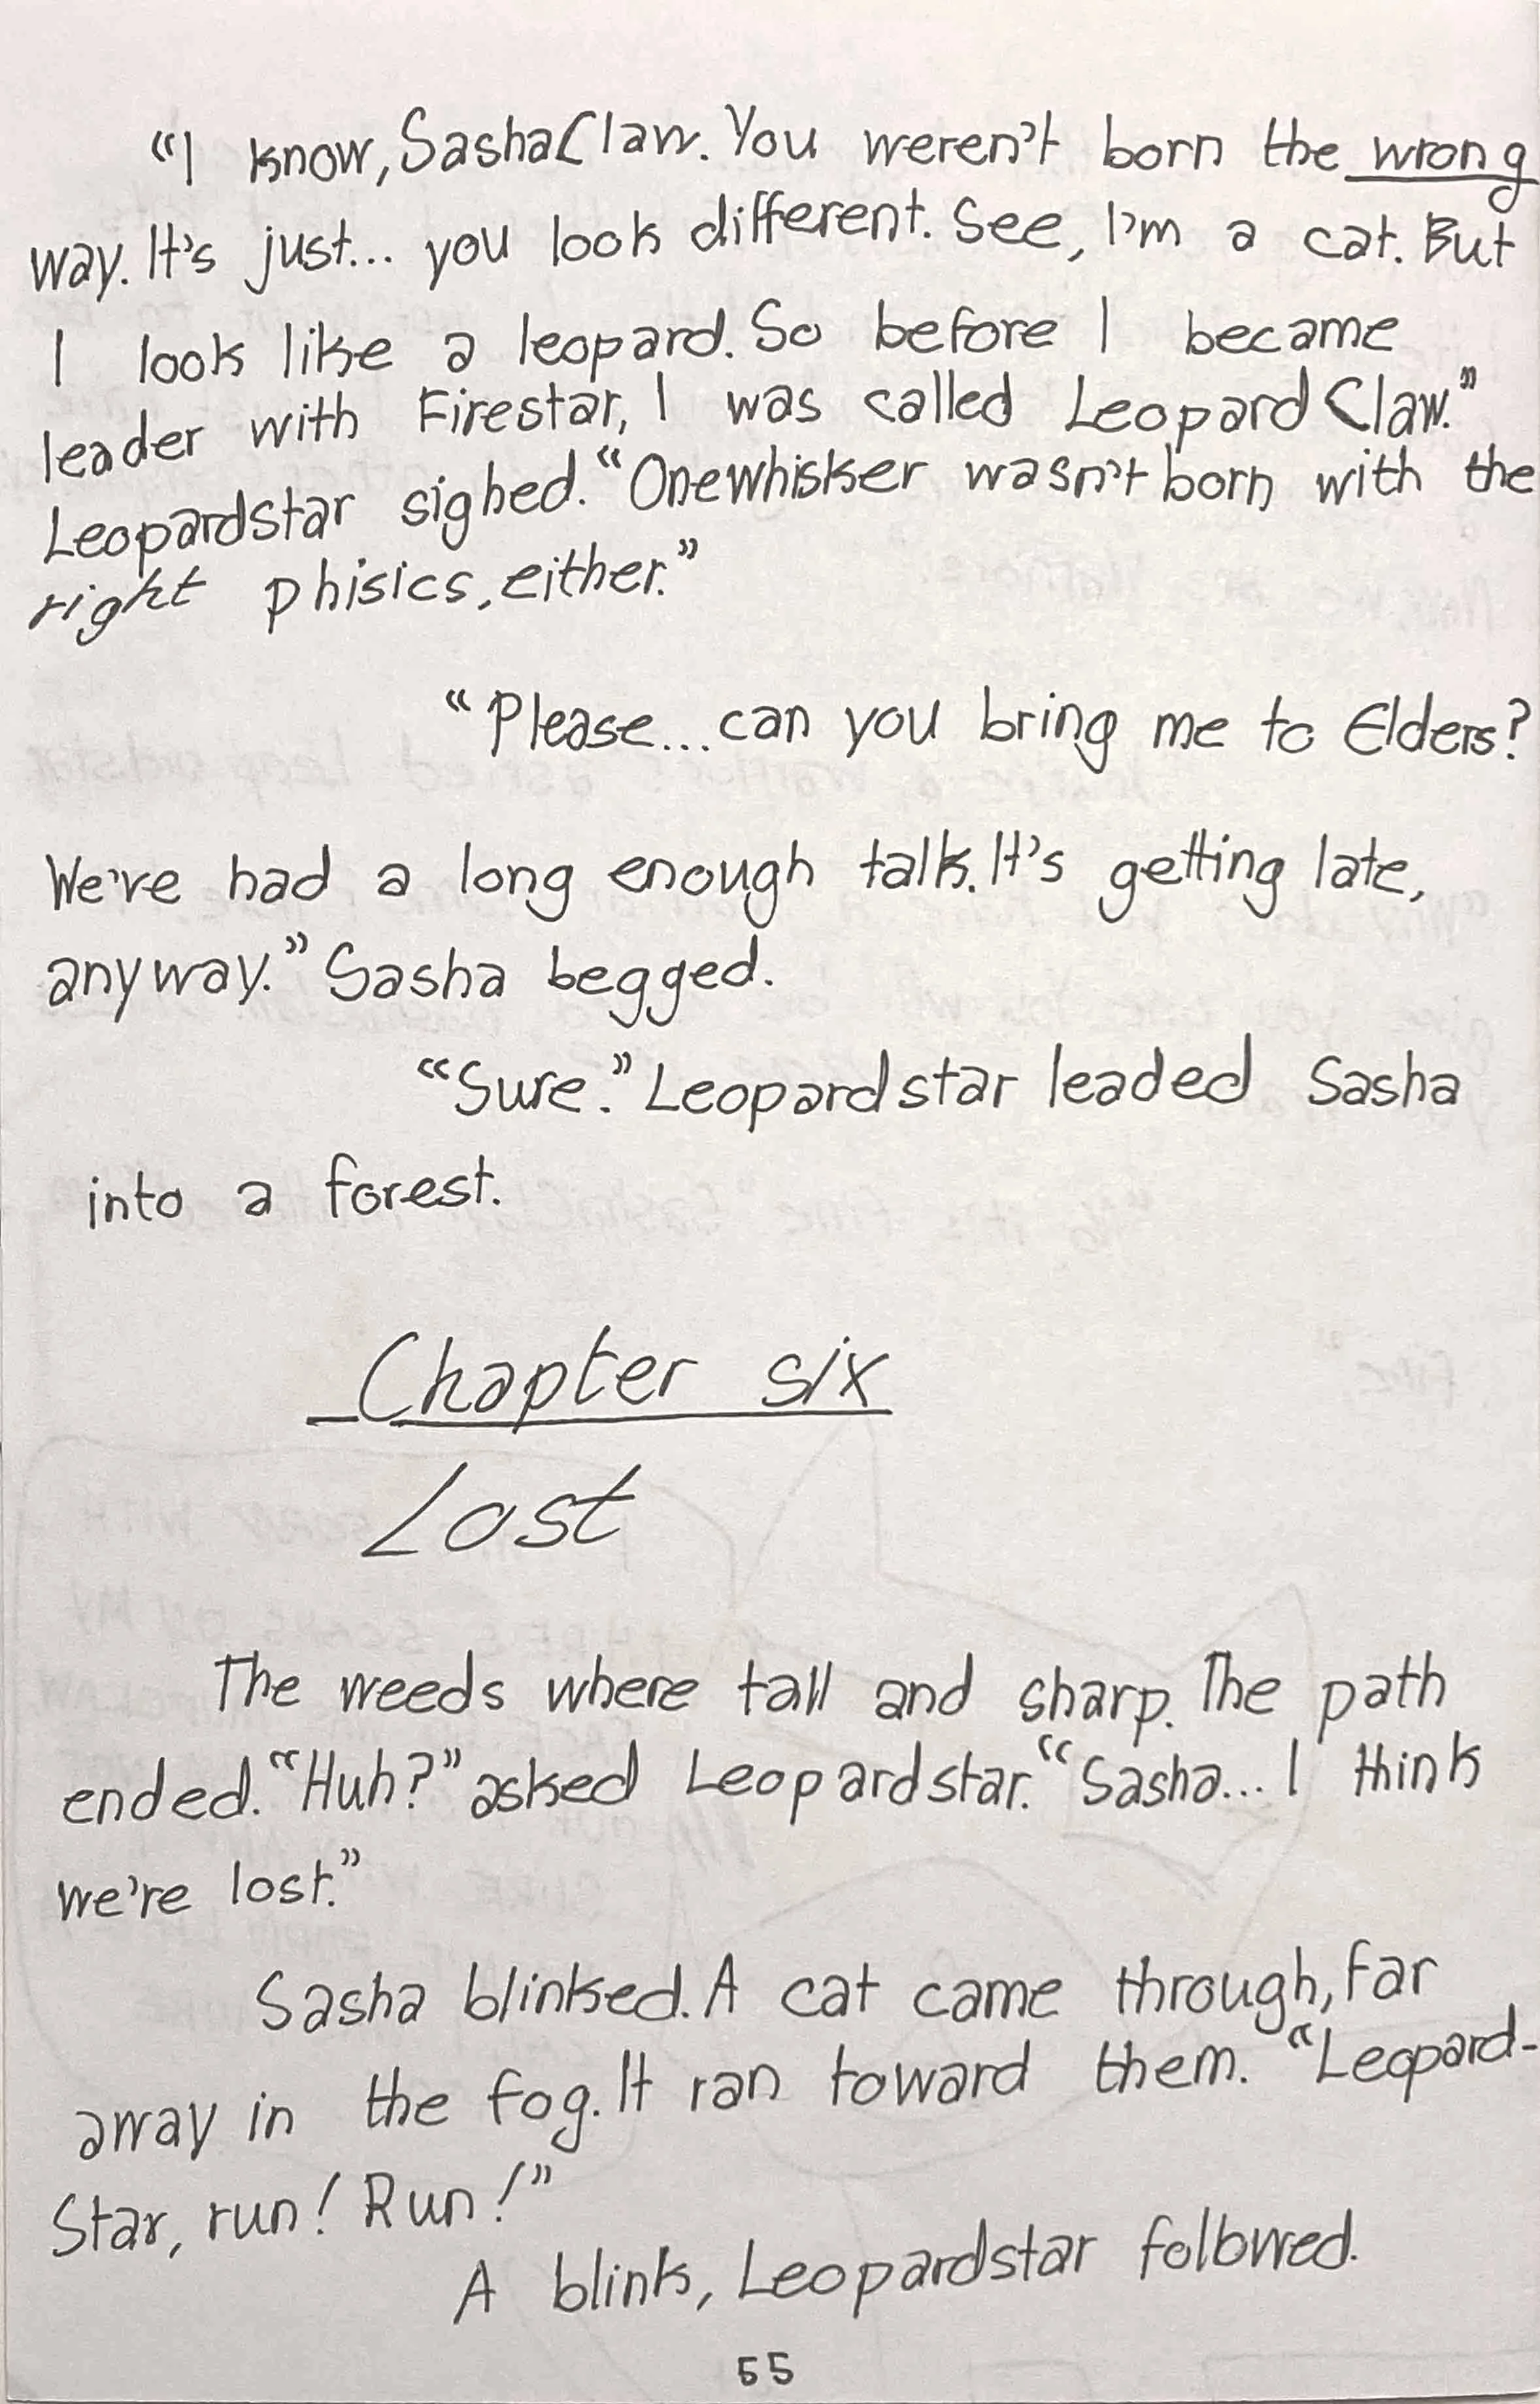 “I know, SashaClaw. You weren’t born the wrong
way. It’s just... you look different. See, I’m a cat. But
I look like a leopard. So before I became
leader with Firestar, I was called LeopardClaw.”
Leopardstar sighed. “Onewhisker wasn’t born with the
right phisics, either.”
“Please... can you bring me to Elders?
We’ve had a long enough talk. It’s getting late,
anyway.” Sasha begged.
“Sure.” Leopardstar leaded Sasha
into a forest.
Chapter six
Lost
The weeds where tall and sharp. The path
ended. “Huh?” asked Leopardstar. “Sasha... I think
we’re lost.”
Sasha blinked. A cat came through, far
away in the fog. It ran toward them. “Leopard-
Star, run! Run!”
A blink, Leopardstar followed.
55